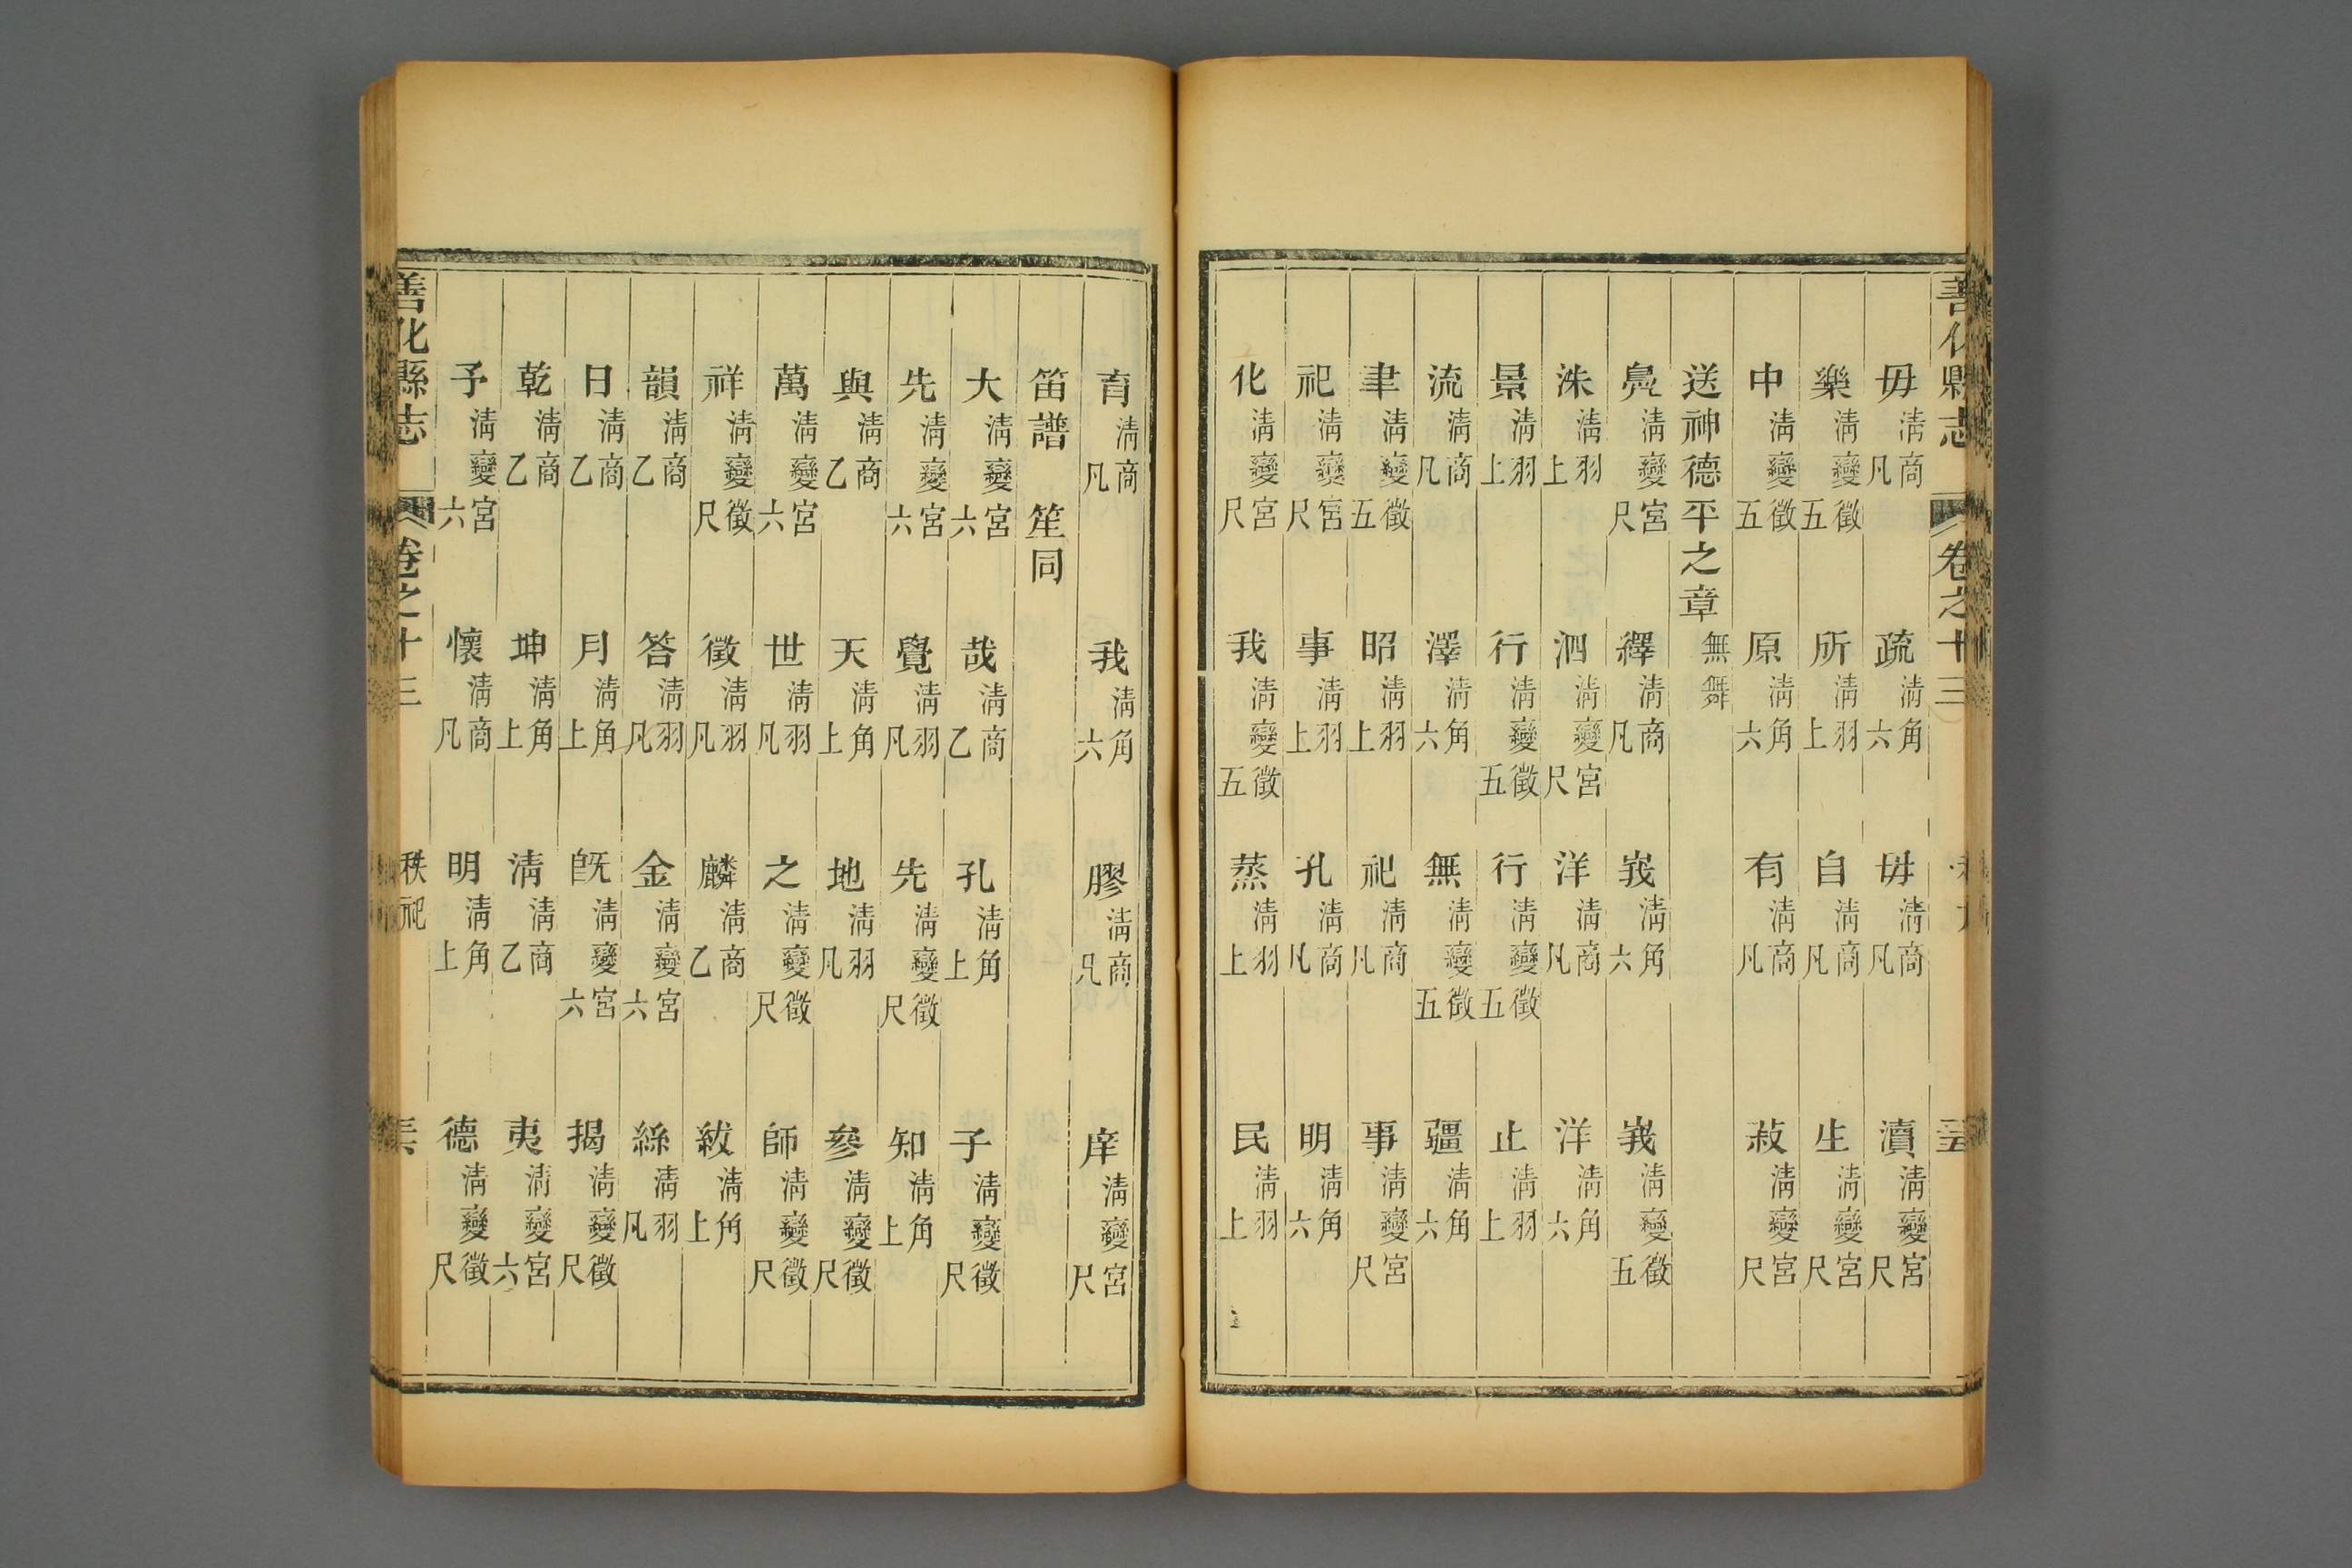 善化縣志 卷之十三 秩祀 三五
毋清商凡 疏清角六 毋清商凡 瀆清變宮尺
樂清變徵五 所清羽上 自清商凡 生清變宮尺
中清變徵五 原清角六 有清商凡 菽清變宮尺
送神德平之章 無舞
鳧清變宮尺 繹清商凡 峩清角六 峩清變徵五
洙清羽上 泗清變宮尺 洋清商凡 洋清角六
景清羽上 行清變徵五 行清變徵五 止清羽上
流清商凡 澤清角六 無清變徵五 疆清角六
聿清變徵五 昭清羽上 祀清商凡 事清變宮尺
祀清變宮尺 事清羽上 孔清商凡 明清角六
化清變宮尺 我清變徵五 蒸清羽上 民清羽上
育清商凡 我清角六 膠清商凡 庠清變宮尺
笛譜 笙同
大清變宮六 哉清商乙 孔清角上 子清變徵尺
先清變宮六 覺清羽凡 先清變徵尺 知清角上
與清商乙 天清角上 地清羽凡 參清變徵尺
萬清變宮六 世清羽凡 之清變徵尺 師清變徵尺
祥清變徵尺 徵清羽凡 麟清商乙 紱清角上
韻清商乙 答清羽凡 金清變宮六 絲清羽凡
日清商乙 月清角上 旣清變宮六 揭清變徵尺
乾清商乙 坤清角上 清清商乙 夷清變宮六
予清變宮六 懷清商凡 明清角上 德清變徵尺
善化縣志 卷之十三 秩祀